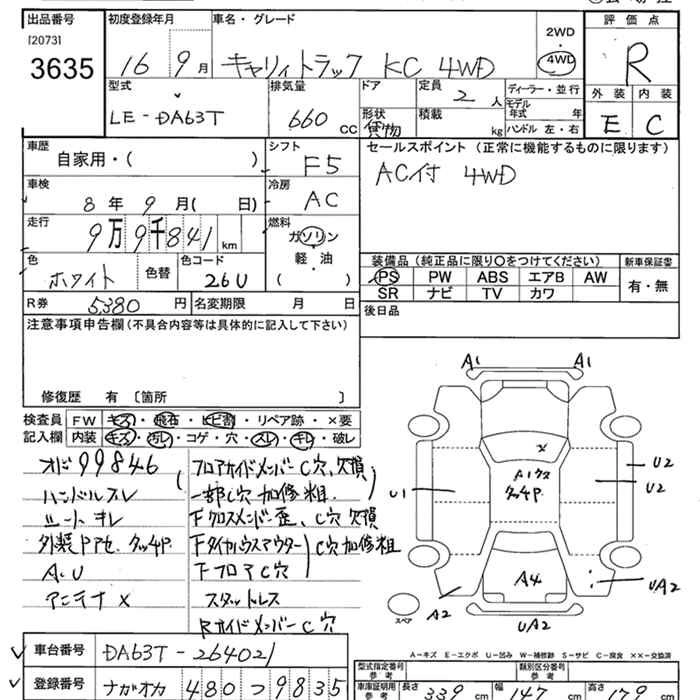 出品番号
[2073]
3635
初度登録年月
16 9月
車名・グレード
キャリィトラック KC 4WD
2WD
・
4WD
評価点
R
型式
LE-DA63T
排気量
660 cc
ドア
形状
貨物
定員
2 人
積載
kg
ディーラー・並行
モデル年式 年
ハンドル 左・右
外装 内装
E C
車歴
自家用・( )
シフト
F5
車検
8年 9月( 日)
冷房
AC
走行
9万9千841 km
燃料
ガソリン
軽・油
( )
色
ホワイト
色替
色コード
26U
R券 5,380 円
名変期限 月 日
セールスポイント (正常に機能するものに限ります)
AC付 4WD
装備品 (純正品に限り○をつけてください)
新車保証書
PS PW ABS エアB AW
SR ナビ TV カワ
有・無
後日品
注意事項申告欄(不具合内容等は具体的に記入して下さい)
修復歴 有 〔箇所 〕
検査員
記入欄
FW キズ・飛石・ヒビ割・リペア跡・×要
内装 キズ・汚レ・コゲ・穴・スレ・キレ・破レ
オド99846
ハンドルスレ
シートキレ
外装PPアセ、クッ4P
A、U
アンテナ×
フロアサイドメンバーC穴、欠損
一部C穴加修粗
Fクロスメンバー歪、C穴欠損
FタイヤハウスアウターC穴加修粗
FフロアC穴
スタットレス
RサイドメンバーC穴
A1 A1
U2
U2
U1
A1クス
クッ4P
A4
A2
UA2
UA2
スペア
車台番号 DA63T-264021
登録番号 ナガオカ 480つ9835
A-キズ E-エクボ U-凹み W-補修跡 S-サビ C-腐食 ××-交換済
型式指定番号
参考
類別区分番号
参考
車庫証明用
参考
長さ 339 cm 幅 147 cm 高さ 179 cm